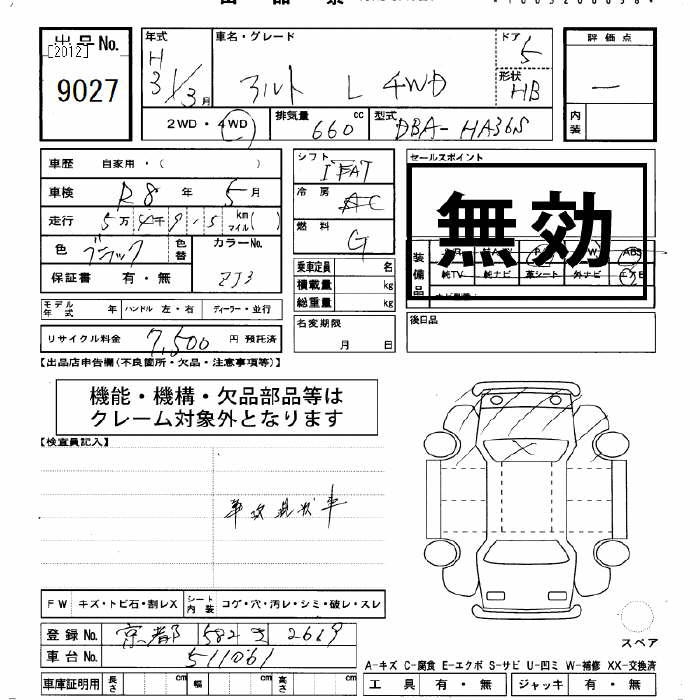 出品票
出品No. [2012] 9027
年式 H 31/3月
車名・グレード アルト L 4WD
ドア 5
形状 HB
評価点 —
内装
2WD・4WD
排気量 660 cc
型式 DBA-HA36S
車歴 自家用・( )
車検 R8年 5月
走行 5万 4千 9.5 km マイル( )
色 ブラック 色替
カラーNo. ZJ3
保証書 有・無
モデル年式 年 ハンドル 左・右 ディーラー・並行
リサイクル料金 7,500 円 預託済
シフト IFAT
冷房 AC
燃料 G
乗車定員 名
積載量 kg
総重量 kg
名変期限 月 日
セールスポイント
無効
装備品
純TV 純ナビ 革シート 外ナビ エアB
後日品
【出品店申告欄(不良箇所・欠品・注意事項等)】
機能・機構・欠品部品等は
クレーム対象外となります
【検査員記入】
事故現状車
FW キズ・トビ石・割レX シート内装 コゲ・穴・汚レ・シミ・破レ・スレ
登録No. 京都 582 き 2619
車台No. 511061
車庫証明用 長さ cm 幅 cm 高さ cm
スペア
A-キズ C-腐食 E-エクボ S-サビ U-凹ミ W-補修 XX-交換済
工具 有・無 ジャッキ 有・無